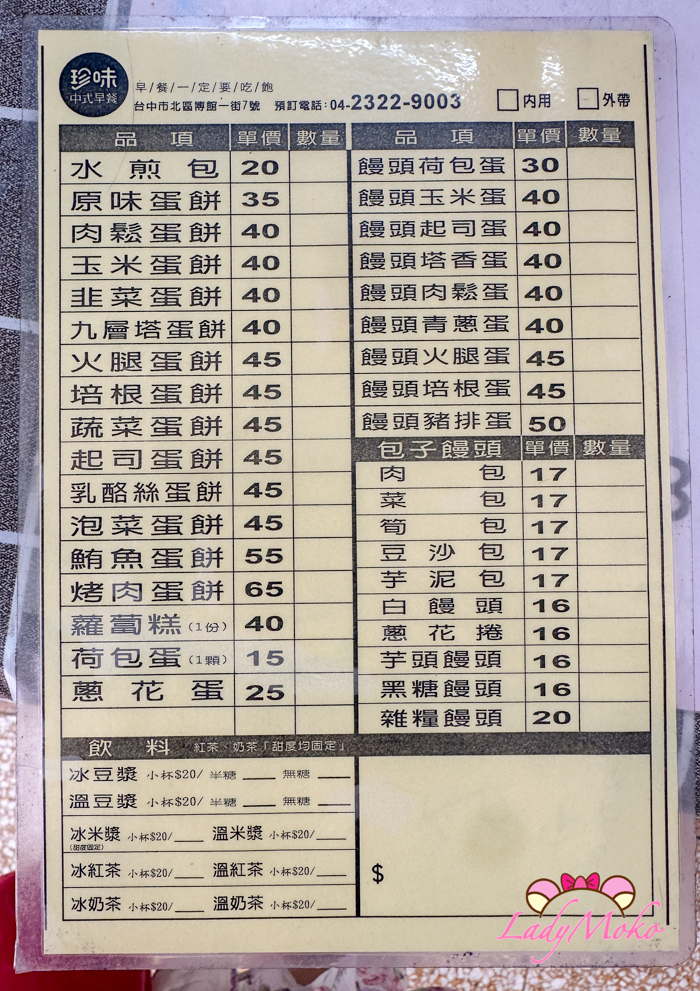 珍味
中式早餐
早/餐/一/定/要/吃/飽
台中市北區博館一街7號 預訂電話:04-2322-9003 內用 外帶
品項 單價 數量
水煎包 20
原味蛋餅 35
肉鬆蛋餅 40
玉米蛋餅 40
韭菜蛋餅 40
九層塔蛋餅 40
火腿蛋餅 45
培根蛋餅 45
蔬菜蛋餅 45
起司蛋餅 45
乳酪絲蛋餅 45
泡菜蛋餅 45
鮪魚蛋餅 55
烤肉蛋餅 65
蘿蔔糕(1份) 40
荷包蛋(1顆) 15
蔥花蛋 25
品項 單價 數量
饅頭荷包蛋 30
饅頭玉米蛋 40
饅頭起司蛋 40
饅頭塔香蛋 40
饅頭肉鬆蛋 40
饅頭青蔥蛋 40
饅頭火腿蛋 45
饅頭培根蛋 45
饅頭豬排蛋 50
包子饅頭 單價 數量
肉包 17
菜包 17
筍包 17
豆沙包 17
芋泥包 17
白饅頭 16
蔥花捲 16
芋頭饅頭 16
黑糖饅頭 16
雜糧饅頭 20
飲料 紅茶、奶茶「甜度均固定」
冰豆漿 小杯$20/ 半糖 ___ 無糖 ___
溫豆漿 小杯$20/ 半糖 ___ 無糖 ___
冰米漿 小杯$20/___ 溫米漿 小杯$20/___
(甜度固定)
冰紅茶 小杯$20/___ 溫紅茶 小杯$20/___
冰奶茶 小杯$20/___ 溫奶茶 小杯$20/___
$
LadyMoko